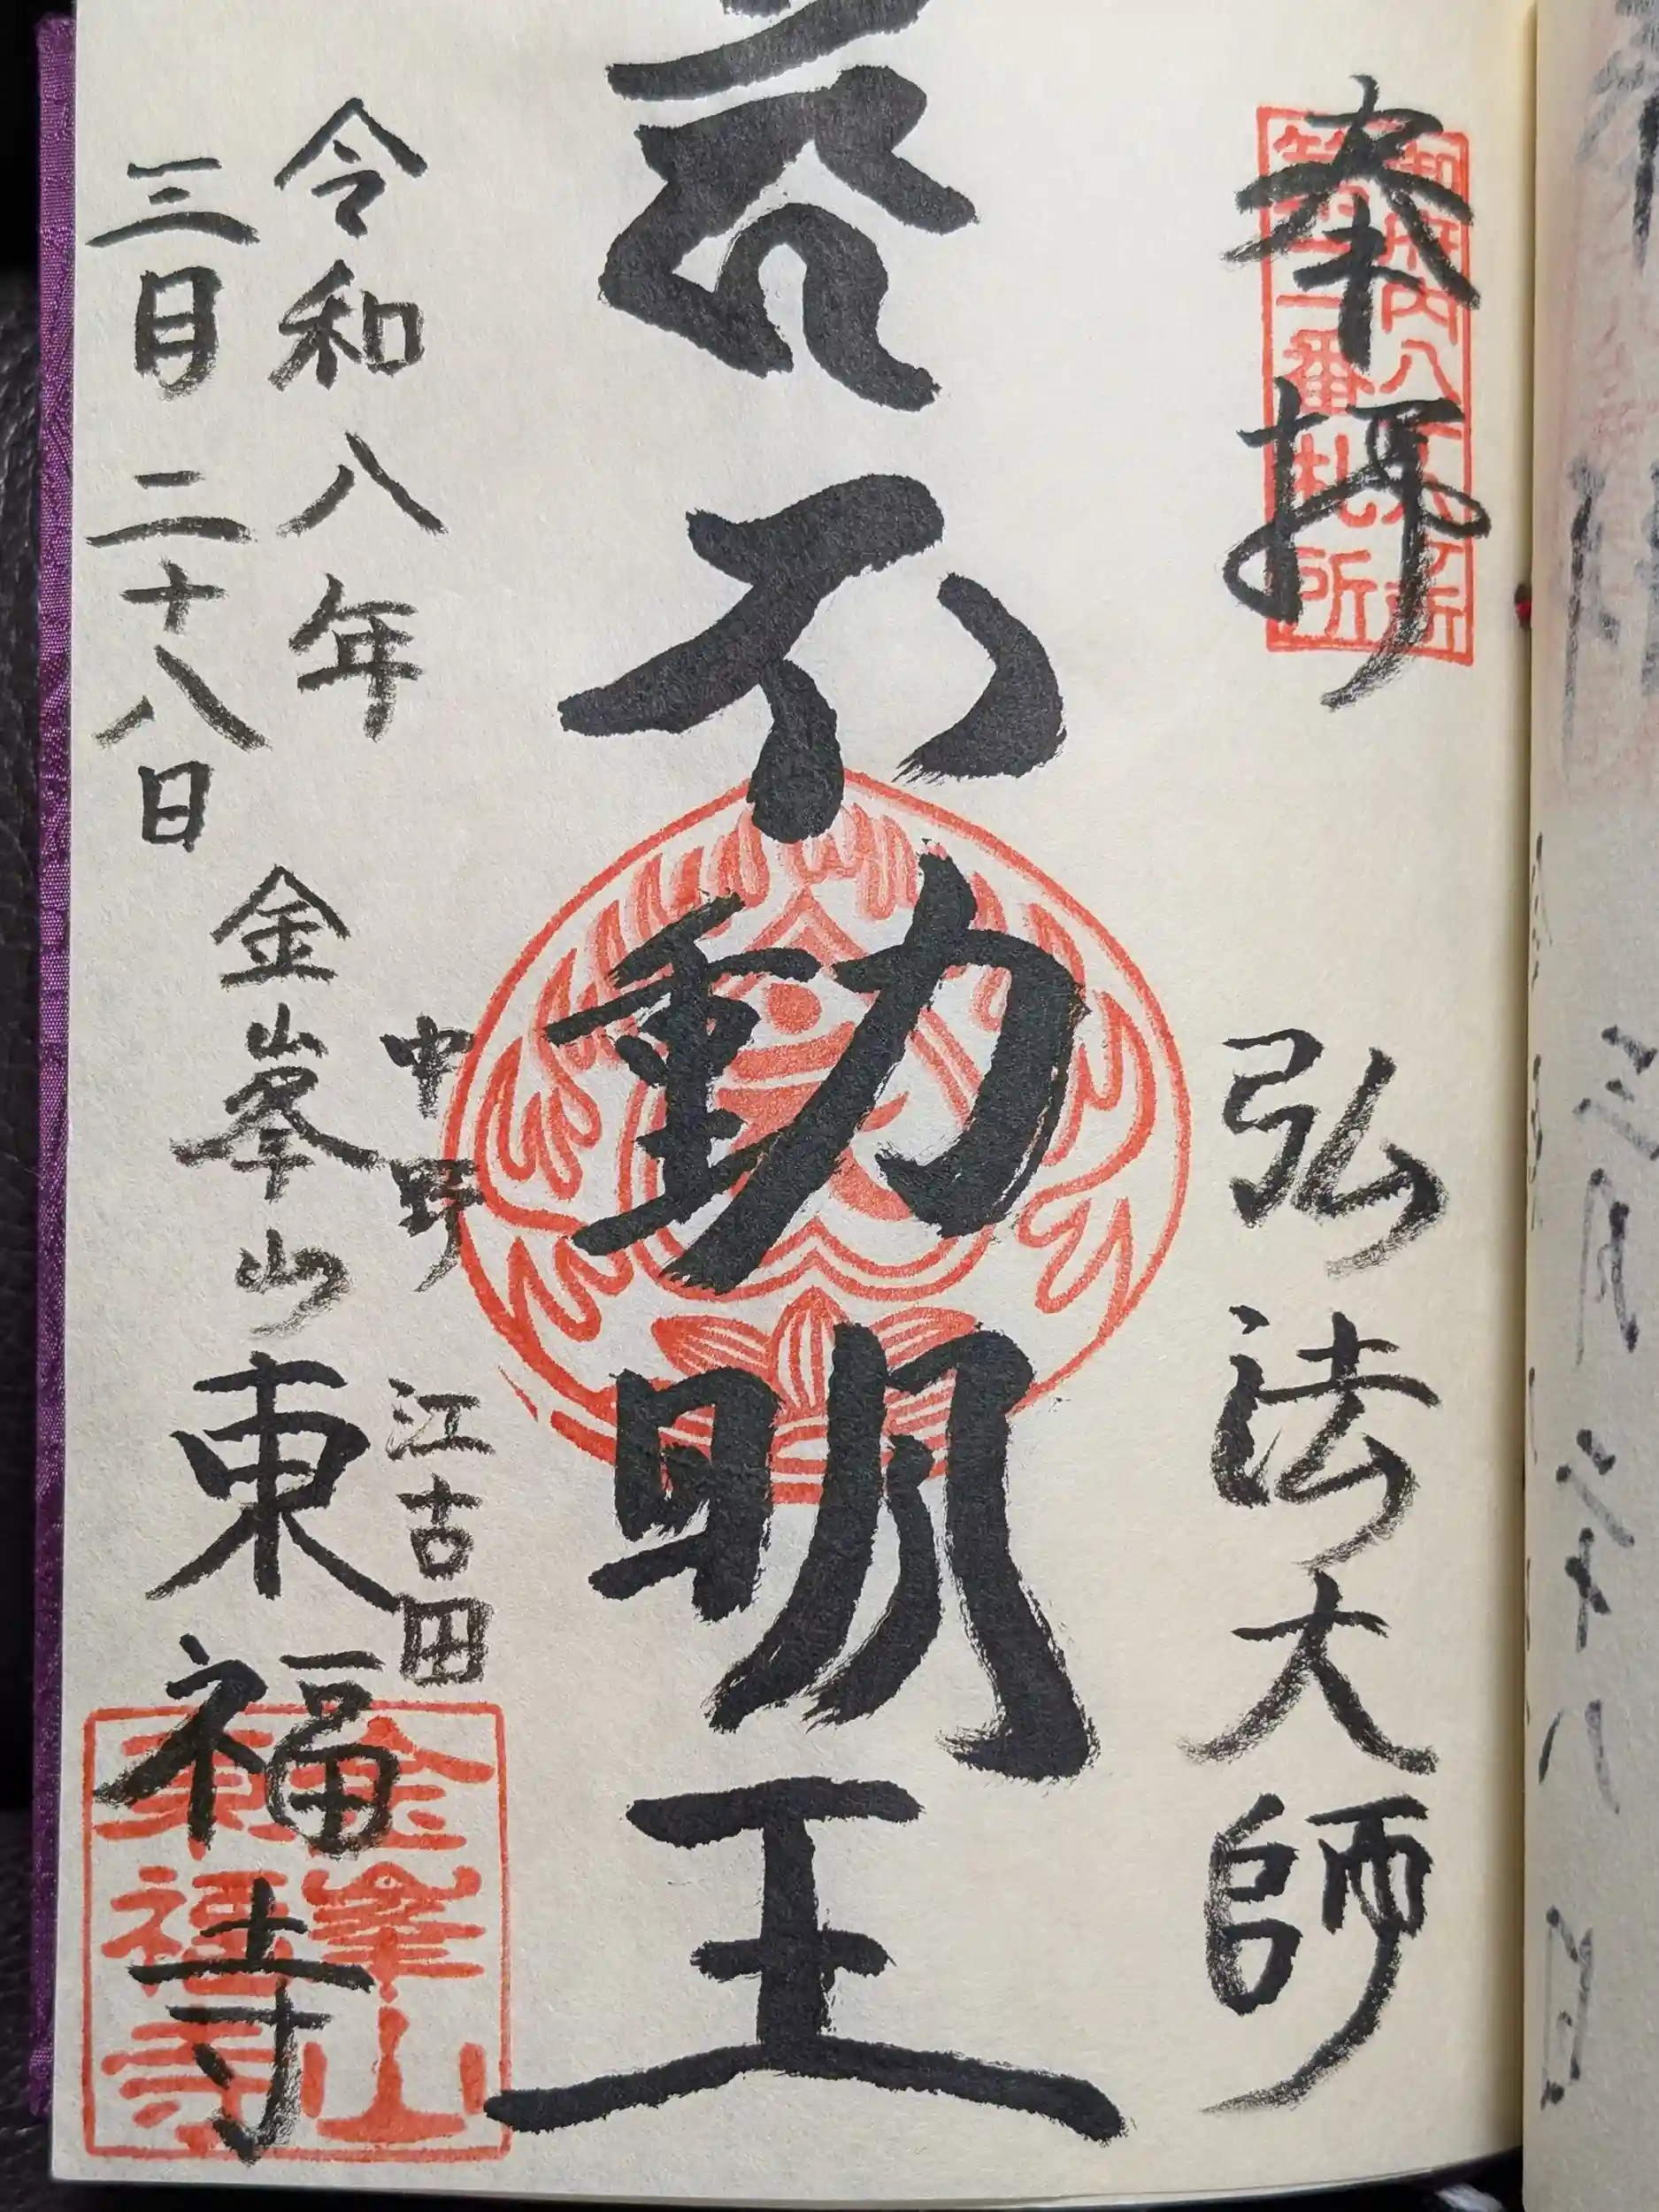 奉拝
弘法大師
不動明王
中野 江古田
金峯山 東福寺
令和八年
三月二十八日
御府内八十八ヶ所
第二番札所
金峯山
東福寺